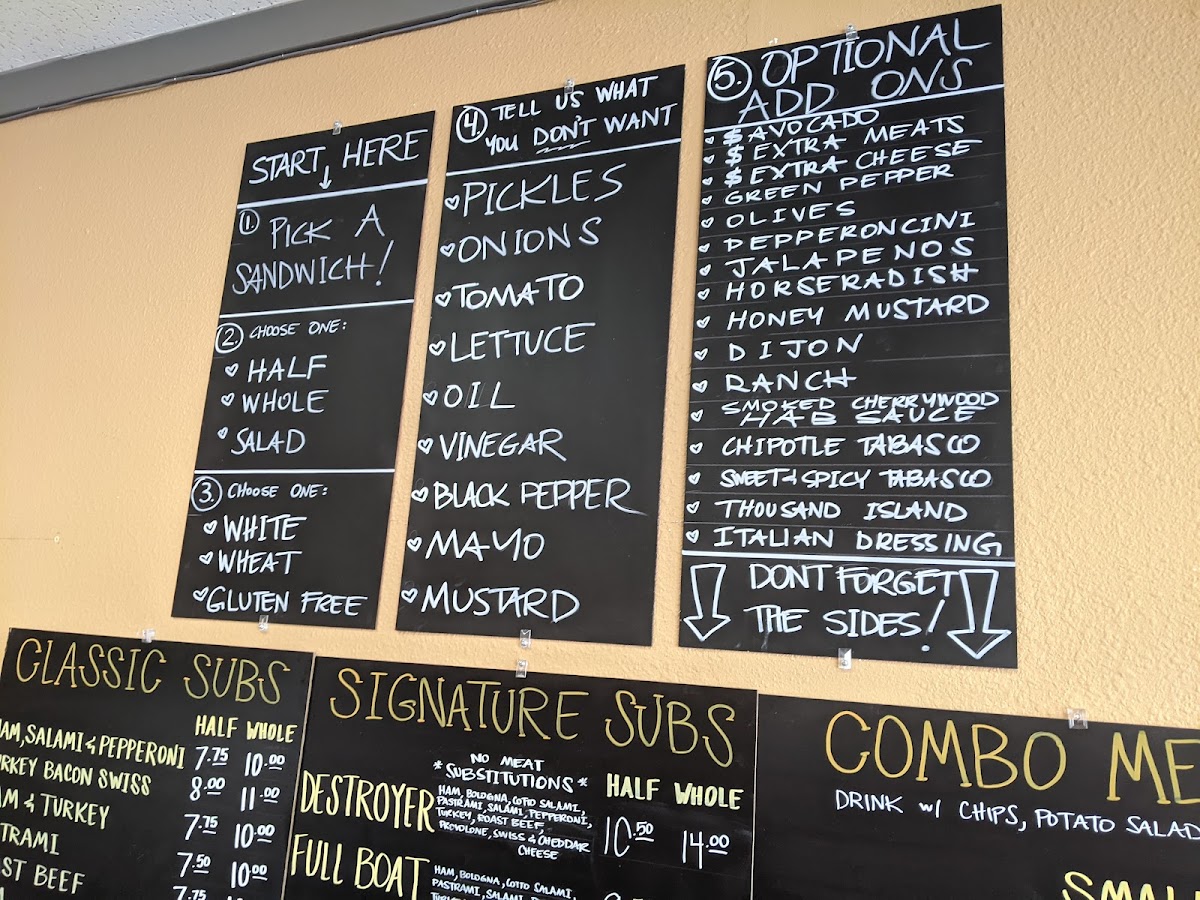 START HERE
1. PICK A
SANDWICH!
2. CHOOSE ONE:
HALF
WHOLE
SALAD
3. CHOOSE ONE:
WHITE
WHEAT
GLUTEN FREE
4. TELL US WHAT
YOU DON'T WANT
PICKLES
ONIONS
TOMATO
LETTUCE
OIL
VINEGAR
BLACK PEPPER
MAYO
MUSTARD
5. OPTIONAL
ADD ONS
$ AVOCADO
$ EXTRA MEATS
$ EXTRA CHEESE
GREEN PEPPER
OLIVES
PEPPERONCINI
JALAPENOS
HORSERADISH
HONEY MUSTARD
DIJON
RANCH
SMOKED CHERRYWOOD
HAB SAUCE
CHIPOTLE TABASCO
SWEET & SPICY TABASCO
THOUSAND ISLAND
ITALIAN DRESSING
DONT FORGET
THE SIDES!
CLASSIC SUBS
HALF WHOLE
HAM, SALAMI & PEPPERONI 7.75 10.00
RKEY BACON SWISS 8.00 11.00
AM & TURKEY 7.75 10.00
TRAMI 7.50 10.00
ST BEEF 7.75
SIGNATURE SUBS
NO MEAT
*SUBSTITUTIONS*
HALF WHOLE
DESTROYER 10.50 14.00
HAM, BOLOGNA, COTTO SALAMI,
PASTRAMI, SALAMI, PEPPERONI,
TURKEY, ROAST BEEF,
PROVOLONE, SWISS & CHEDDAR
CHEESE
FULL BOAT
HAM, BOLOGNA, COTTO SALAMI,
PASTRAMI, SALAMI,
COMBO ME
DRINK w/ CHIPS, POTATO SALAD
SMAL